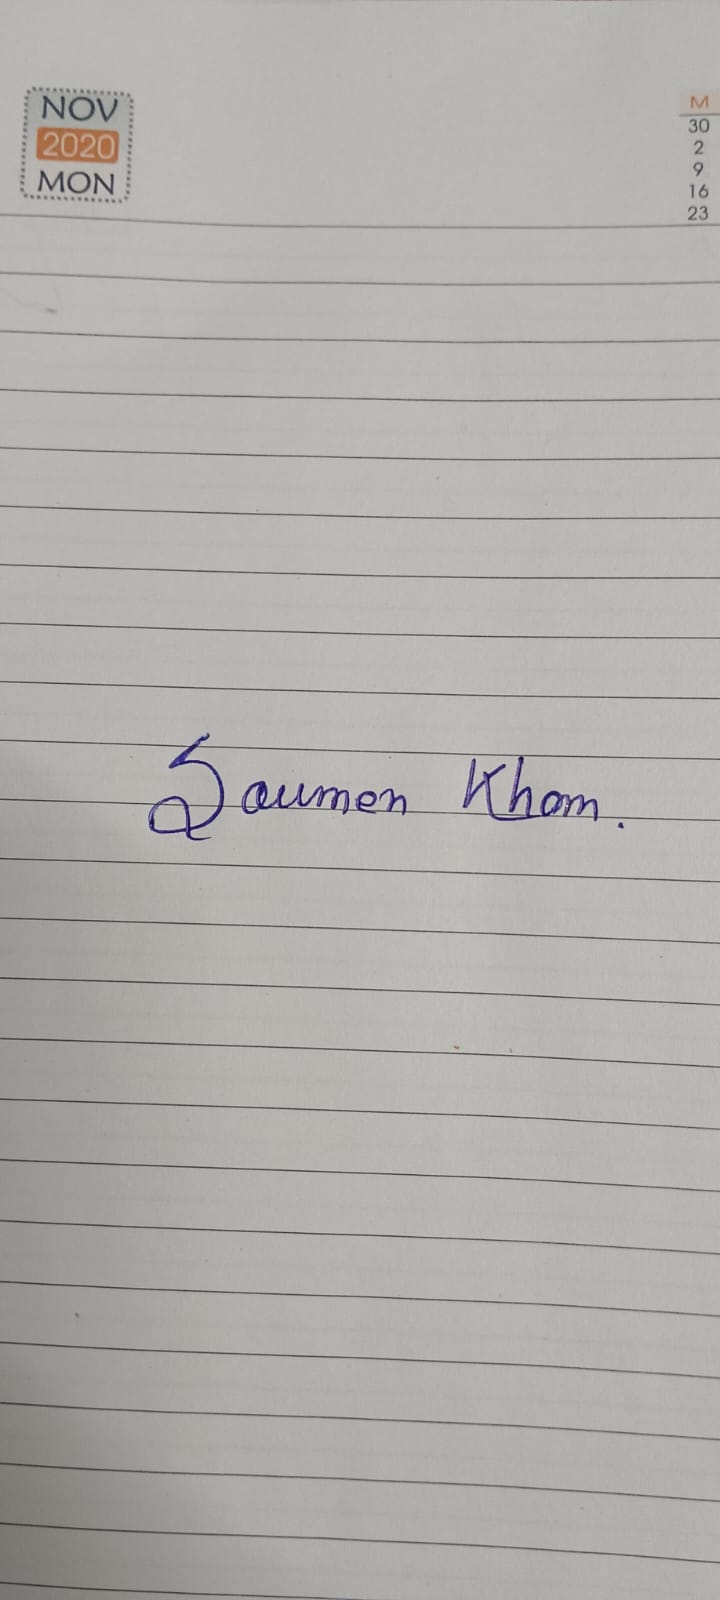 NOV
2020
MON
M
30
2
9
16
23
Saumen Kham.